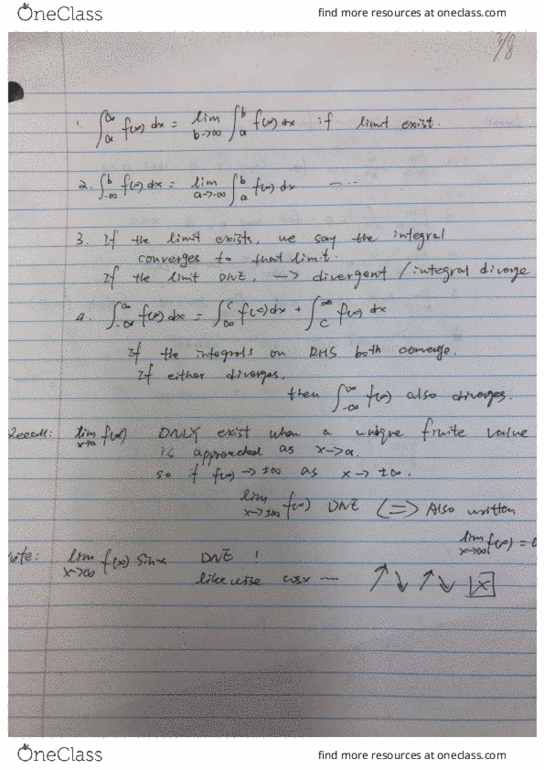 OneClass find more resources at oneclass.com
7/8
1. ∫_a^∞ f(x) dx = lim_{b→∞} ∫_a^b f(x) dx if limit exist.
2. ∫_{-∞}^b f(x) dx = lim_{a→-∞} ∫_a^b f(x) dx ....
3. If the limit exists, we say the integral
converges to that limit.
If the limit DNE, → divergent / integral diverge
4. ∫_{-∞}^∞ f(x) dx = ∫_∞^c f(x) dx + ∫_c^∞ f(x) dx
If the integrals on RHS both converge.
If either diverges,
then ∫_{-∞}^∞ f(x) also diverges.
Recall: lim_{x→a} f(x) ONLY exist when a unique finite value
is approached as x→a.
so if f(x) → ±∞ as x → ±∞.
lim_{x→±∞} f(x) DNE (=> Also written
lim_{x→∞} f(x) =
note: lim_{x→∞} f(x) sinx DNE !
likewise cosx ....
OneClass find more resources at oneclass.com